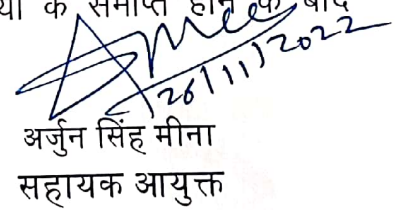 के समाप्त होने के बाद
26/11/2022
अर्जुन सिंह मीना
सहायक आयुक्त